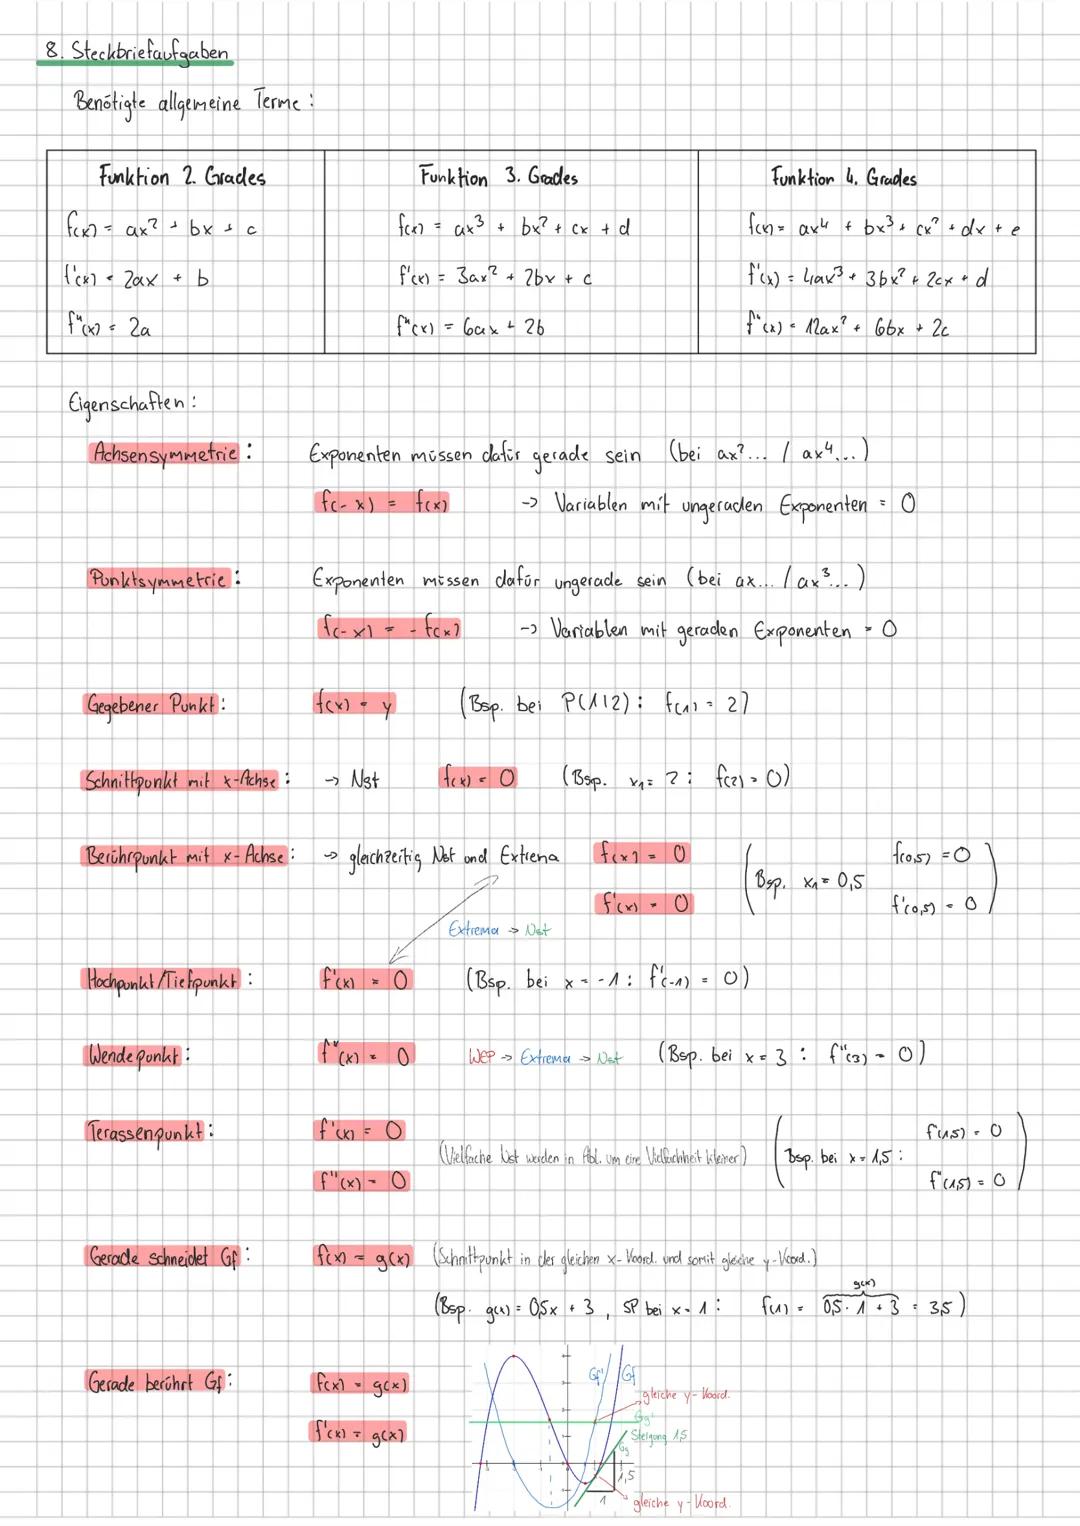 8. Steckbriefaufgaben
Benötigte allgemeine Terme:
Funktion 2. Grades
f(x) = ax² + bx + c
f'(x) = 2ax + b
f"(x) = 2a
Funktion 3. Grades
f(x) = ax³ + bx² + cx + d
f'(x) = 3ax² + 2bx + c
f"(x) = 6ax + 2b
Funktion 4. Grades
f(x) = ax⁴ + bx³ + cx² + dx + e
f'(x) = 4ax³ + 3bx² + 2cx + d
f"(x) = 12ax² + 6bx + 2c
Eigenschaften:
Achsensymmetrie: Exponenten müssen dafür gerade sein (bei ax²... / ax⁴...)
f(-x) = f(x) -> Variablen mit ungeraden Exponenten = 0
Punktsymmetrie: Exponenten müssen dafür ungerade sein (bei ax... / ax³...)
f(-x) = - f(x) -> Variablen mit geraden Exponenten = 0
Gegebener Punkt: f(x) = y (Bsp. bei P(1|2): f(1) = 2)
Schnittpunkt mit x-Achse: -> Nst f(x) = 0 (Bsp. x₁ = 2: f(2) = 0)
Berührpunkt mit x-Achse: -> gleichzeitig Nst und Extrema f(x) = 0
f'(x) = 0
(Bsp. x₁ = 0,5 f(0,5) = 0
f'(0,5) = 0)
Extrema -> Nst
Hochpunkt/Tiefpunkt: f'(x) = 0 (Bsp. bei x = -1: f'(-1) = 0)
Wendepunkt: f"(x) = 0 WEP -> Extrema -> Nst (Bsp. bei x = 3: f"(3) = 0)
Terassenpunkt: f'(x) = 0
f"(x) = 0
(Vielfache Nst werden in Abl. um eine Vielfachheit kleiner)
(Bsp. bei x = 1,5: f'(1,5) = 0
f"(1,5) = 0)
Gerade schneidet Gf: f(x) = g(x) (Schnittpunkt in der gleichen x-Koord. und somit gleiche y-Koord.)
g(x)
(Bsp. g(x) = 0,5x + 3, SP bei x = 1: f(1) = 0,5 · 1 + 3 = 3,5)
Gerade berührt Gf: f(x) = g(x)
f'(x) = g(x)
Gf' Gf
gleiche y-Koord.
Gg'
Steigung 1,5
Gg
1,5
1
gleiche y-Koord.